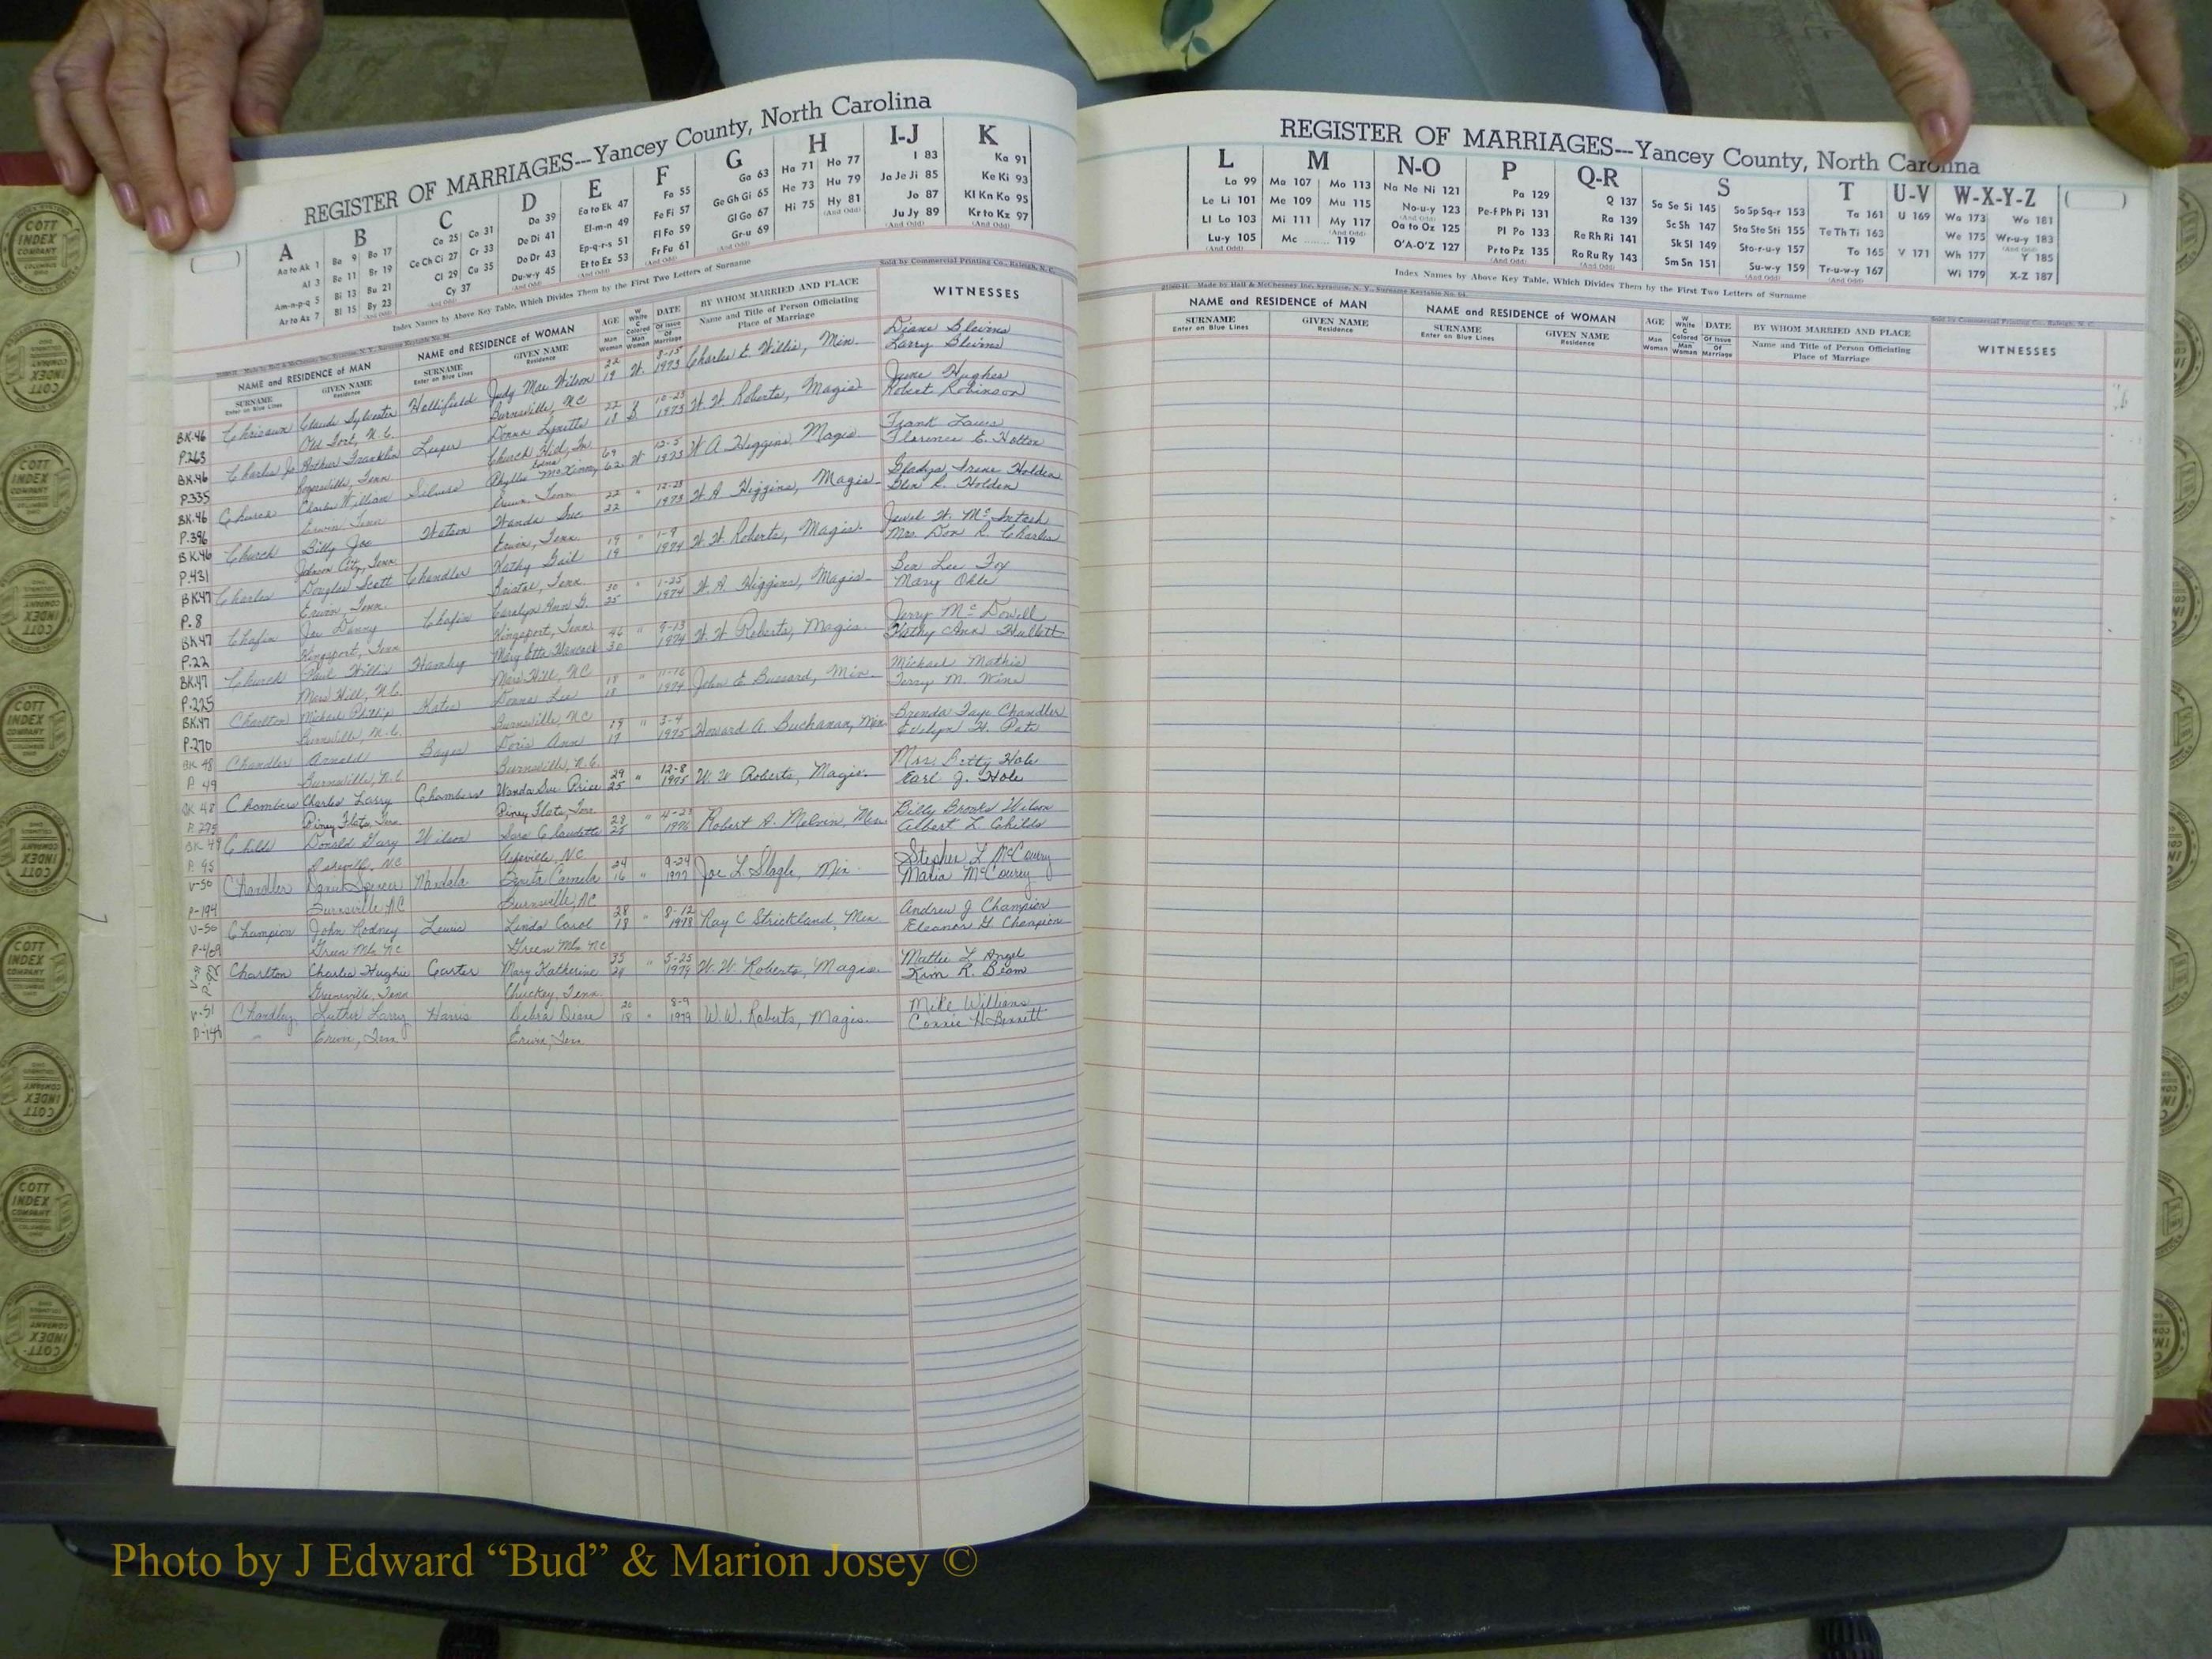 REGISTER OF MARRIAGES---Yancey County, North Carolina
A B C D E F G H I-J K
Aa to Ak 1 Ba 9 Bo 17 Ca 25 Co 31 Da 39 Ea to Ek 47 Fa 55 Ga 63 Ha 71 Ho 77 I 83 Ka 91
Al 3 Be 11 Br 19 Ce Ch Ci 27 Cr 33 De Di 41 El-m-n 49 Fe Fi 57 Ge Gh Gi 65 He 73 Hu 79 Ja Je Ji 85 Ke Ki 93
Am-n-p-q 5 Bi 13 Bu 21 Cl 29 Cu 35 Do Dr 43 Ep-q-r-s 51 Fl Fo 59 Gl Go 67 Hi 75 Hy 81 Jo 87 Kl Kn Ko 95
Ar to Az 7 Bl 15 By 23 Cy 37 Du-w-y 45 Et to Ez 53 Fr Fu 61 Gr-u 69 Ju Jy 89 Kr to Kz 97
Index Names by Above Key Table, Which Divides Them by the First Two Letters of Surname
Sold by Commercial Printing Co., Raleigh, N. C.
NAME and RESIDENCE OF MAN NAME and RESIDENCE of WOMAN AGE W White C Colored DATE BY WHOM MARRIED AND PLACE WITNESSES
SURNAME GIVEN NAME SURNAME GIVEN NAME Man Man Of Issue Name and Title of Person Officiating
Enter on Blue Lines Residence Enter on Blue Lines Residence Woman Woman Of Marriage Place of Marriage
BK.46 Claude Sylvester Hollifield Judy Mae Wilson 22 W. 8-15 Charles E. Willis, Min. Diane Blevins
P.263 Old Fort, N.C. Burnsville, NC 19 1973 Larry Blevins
BK.46 Charles Jr Arthur Franklin Leeper Donna Lynette 22 10-25 W. W. Roberts, Magis. June Hughes
P.335 Rogersville, Tenn. Church Hill, Tn. 18 1973 Robert Robinson
BK.46 Church Charles William Silvers Phyllis McKinney 69 W 12-5 W A Higgins Magis. Frank Laws
P.396 Erwin Tenn Erwin, Tenn. 62 1973 Florence E. Holton
BK.46 Church Billy Joe Watson Wanda Sue 22 " 12-28 W. A Higgins, Magis. Gladys Irene Holden
P.431 Johnson City, Tenn Erwin, Tenn. 22 1973 Glen R. Holden
BK47 Charles Douglas Scott Chandler Kathy Gail 19 " 1-9 W. W. Roberts, Magis. Jewel W. McIntosh
P.8 Erwin, Tenn. Bristol, Tenn. 19 1974 Mrs. Don R. Charles
BK47 Chafin Joe Danny Chafin Carolyn Ann G. 30 " 1-25 W. A. Higgins, Magis. Ben Lee Fox
P.22 Kingsport, Tenn Kingsport, Tenn. 25 1974 Mary Ohle
BK.47 Church Paul Willis Hamby Mary Etta Hancock 46 " 9-13 W. W. Roberts, Magis. Jerry McDowell
P.225 Mars Hill, N.C. Mars Hill, NC 30 1974 Kathy Ann Hullett
BK.47 Charlton Michael Phillip Kates Donna Lee 18 " 11-16 John E Bussard, Min. Michael Mathis
P.270 Burnsville, N.C. Burnsville, NC 18 1974 Terry M. Wine
BK 48 Chandler Arnold Boyer Doris Ann 19 " 3-4 Howard A. Buchanan, Min. Brenda Faye Chandler
P 49 Burnsville, N.C. Burnsville, N.C. 17 1975 Evelyn H. Pate
BK 48 Chambers Charles Larry Chambers Wanda Sue Price 29 " 12-8 W. W Roberts, Magis. Mrs. Betty Hole
P. 275 Piney Flats, Tenn Piney Flats, Tenn 25 1975 Earl J. Hole
BK 49 Childs Donald Gary Wilson Sara Claudette 28 " 4-23 Robert A. Melvin, Min. Billy Brooks Wilson
P. 95 NC Asheville, NC 25 1976 Albert L Childs
V-50 Chandler Spencer Benita Carmela 24 " 9-24 Joe L Slagle, Min. Stephen L McCourry
P-194 Burnsville, NC Burnsville, NC 16 1977 Maria McCourry
V-50 Champion John Rodney Lewis Linda Carol 28 " 8-12 Ray C Strickland, Min. Andrew J Champion
P-409 Green Mtn. NC Green Mtn. NC 18 1978 Eleanor G Champion
V-51 Charlton Charles Hughie Carter Mary Katherine 35 " 5-25 W. W. Roberts, Magis. Mattie L Angel
Greeneville, Tenn Chuckey, Tenn. 1979 Kim R. Beam
V-51 Chandley Luther Larry Harris Debra Diane 20 " 8-9 W.W. Roberts, Magis. Mike Williams
" Erwin, Tenn Erwin, Tenn 18 1979 Connie H Bennett
REGISTER OF MARRIAGES---Yancey County, North Carolina
L M N-O P Q-R S T U-V W-X-Y-Z
La 99 Ma 107 Mo 113 Na Ne Ni 121 Pa 129 Q 137 Sa Se Si 145 So Sp Sq-r 153 Ta 161 U 169 Wa 173 Wo 181
Le Li 101 Me 109 Mu 115 No-u-y 123 Pe-f Ph Pi 131 Ra 139 Sc Sh 147 Sta Ste Sti 155 Te Th Ti 163 We 175 Wr-u-y 183
Ll Lo 103 Mi 111 My 117 Oa to Oz 125 Pl Po 133 Re Rh Ri 141 Sk Sl 149 Sto-r-u-y 157 To 165 V 171 Wh 177 Y 185
Lu-y 105 Mc 119 O'A-O'Z 127 Pr to Pz 135 Ro Ru Ry 143 Sm Sn 151 Su-w-y 159 Tr-u-w-y 167 Wi 179 X-Z 187
Index Names by Above Key Table, Which Divides Them by the First Two Letters of Surname
Made by Hall & McChesney Inc. Syracuse, N. Y.
NAME and RESIDENCE OF MAN NAME and RESIDENCE of WOMAN AGE W White C Colored DATE BY WHOM MARRIED AND PLACE WITNESSES
SURNAME GIVEN NAME SURNAME GIVEN NAME Man Man Of Issue Name and Title of Person Officiating
Enter on Blue Lines Residence Enter on Blue Lines Residence Woman Woman Of Marriage Place of Marriage
COTT
INDEX
COMPANY
Photo by J Edward “Bud” & Marion Josey ©